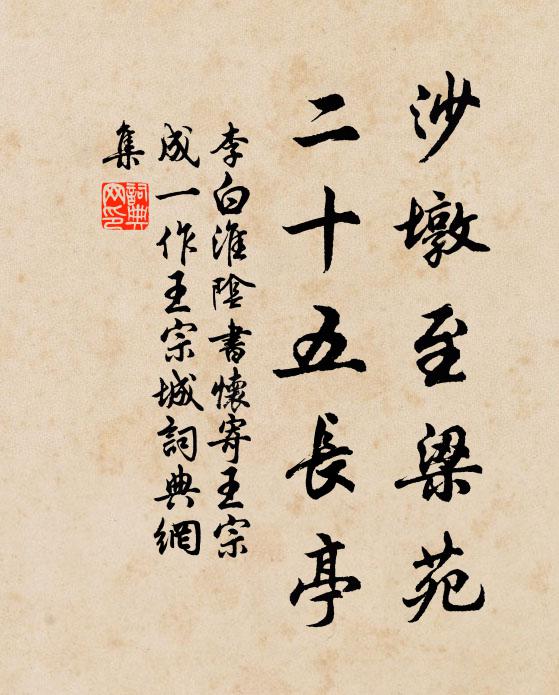 沙墩至梁苑
二十五長亭
李白淮陰書懷寄王宗
成一作王宗城詞典網
集
詞典
网印